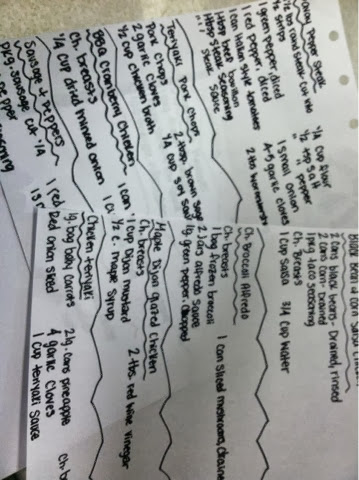 Pepper Steak
1/2 lbs round steak cut into
1/2 strips
1 green pepper, diced
1 red pepper, diced
1 can Italian style tomatoes
1 tsp beef bouillon
1 tbsp steak seasoning
steak sauce
1/4 cup flour
1/2 tsp salt
1/2 " pepper
1 small onion
4-5 garlic cloves
2 tbs worcestershire
Teriyaki Pork Chops
Pork Chops
2 garlic cloves
1/2 cup chicken broth
2 tbsp. brown sugar
1/4 cup soy sauce
BBQ Cranberry Chicken
Ch. breasts
1/4 cup dried minced onion
1 can
1 cu
Sausage & Peppers
pkg. sausage cut 1/4
1 red
1 ja
pepper
seasoning
Black Bean & Corn
2 cans black beans - Drained, rinsed
2 cans corn - drained
1 pkg taco seasoning
Ch. Breasts
1 cup salsa 3/4 cup water
Ch Broccoli Alfredo
Ch breasts
1 bag frozen broccoli
2 jars alfredo sauce
1 lg green pepper, chopped
1 can sliced mushrooms, drained
Maple Dijon Glazed Chicken
Ch. breasts
1 cup Dijon mustard
1/2 c. maple syrup
2 tbs red wine vinegar
Chicken Teriyaki
1 lg. bag baby carrots
Red onion sliced
2 lg. cans pineapple
4 garlic cloves
1 cup teriyaki sauce
Ch. b